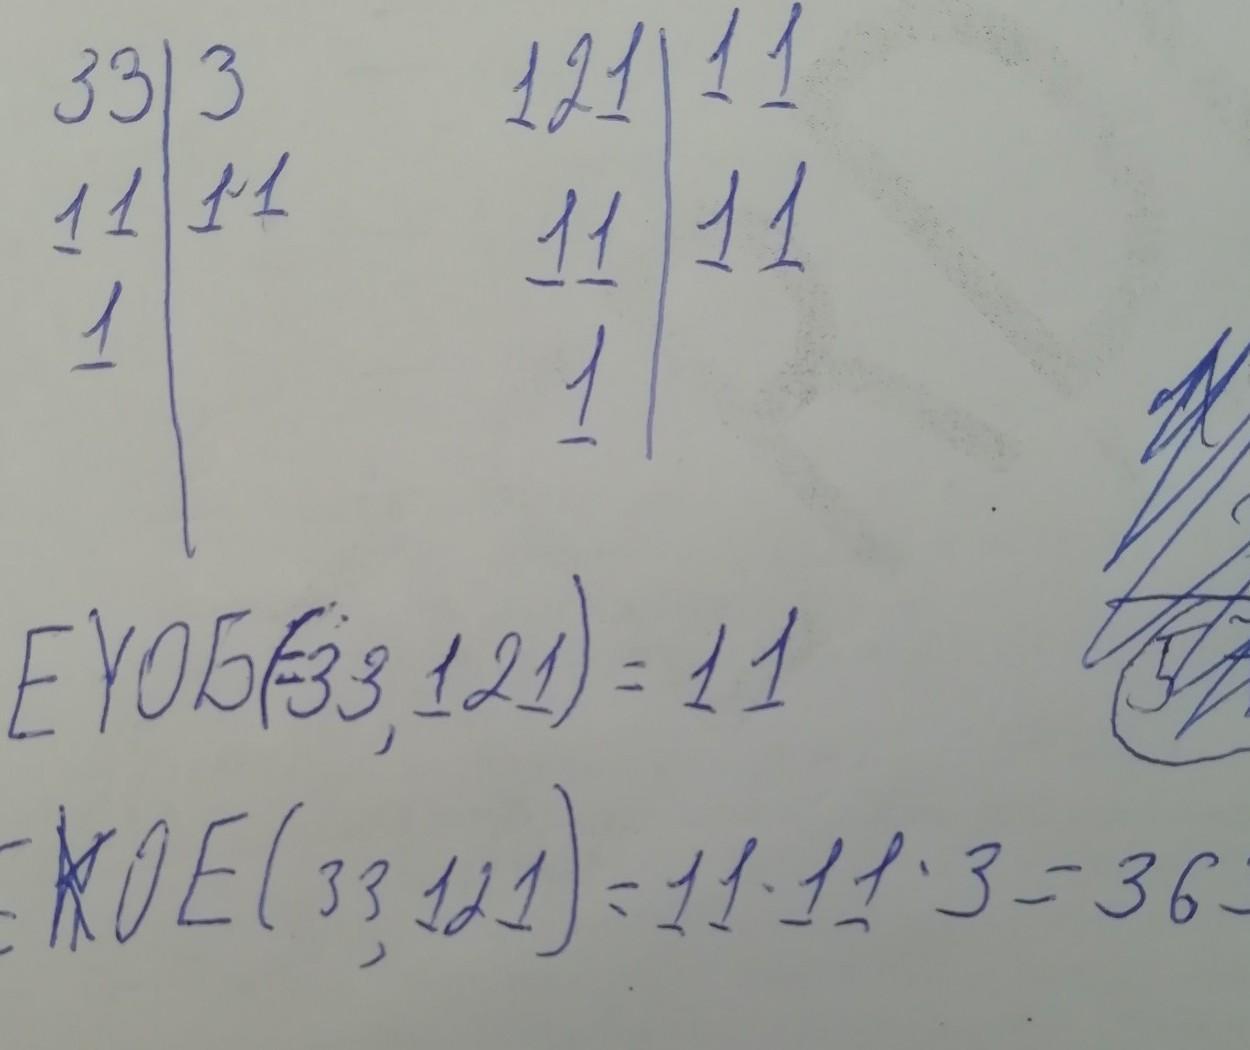 33 | 3
11 | 11
1
121 | 11
11 | 11
1
ЕҮОБ(33, 121) = 11
ЕКОЕ(33, 121) = 11·11·3 = 363